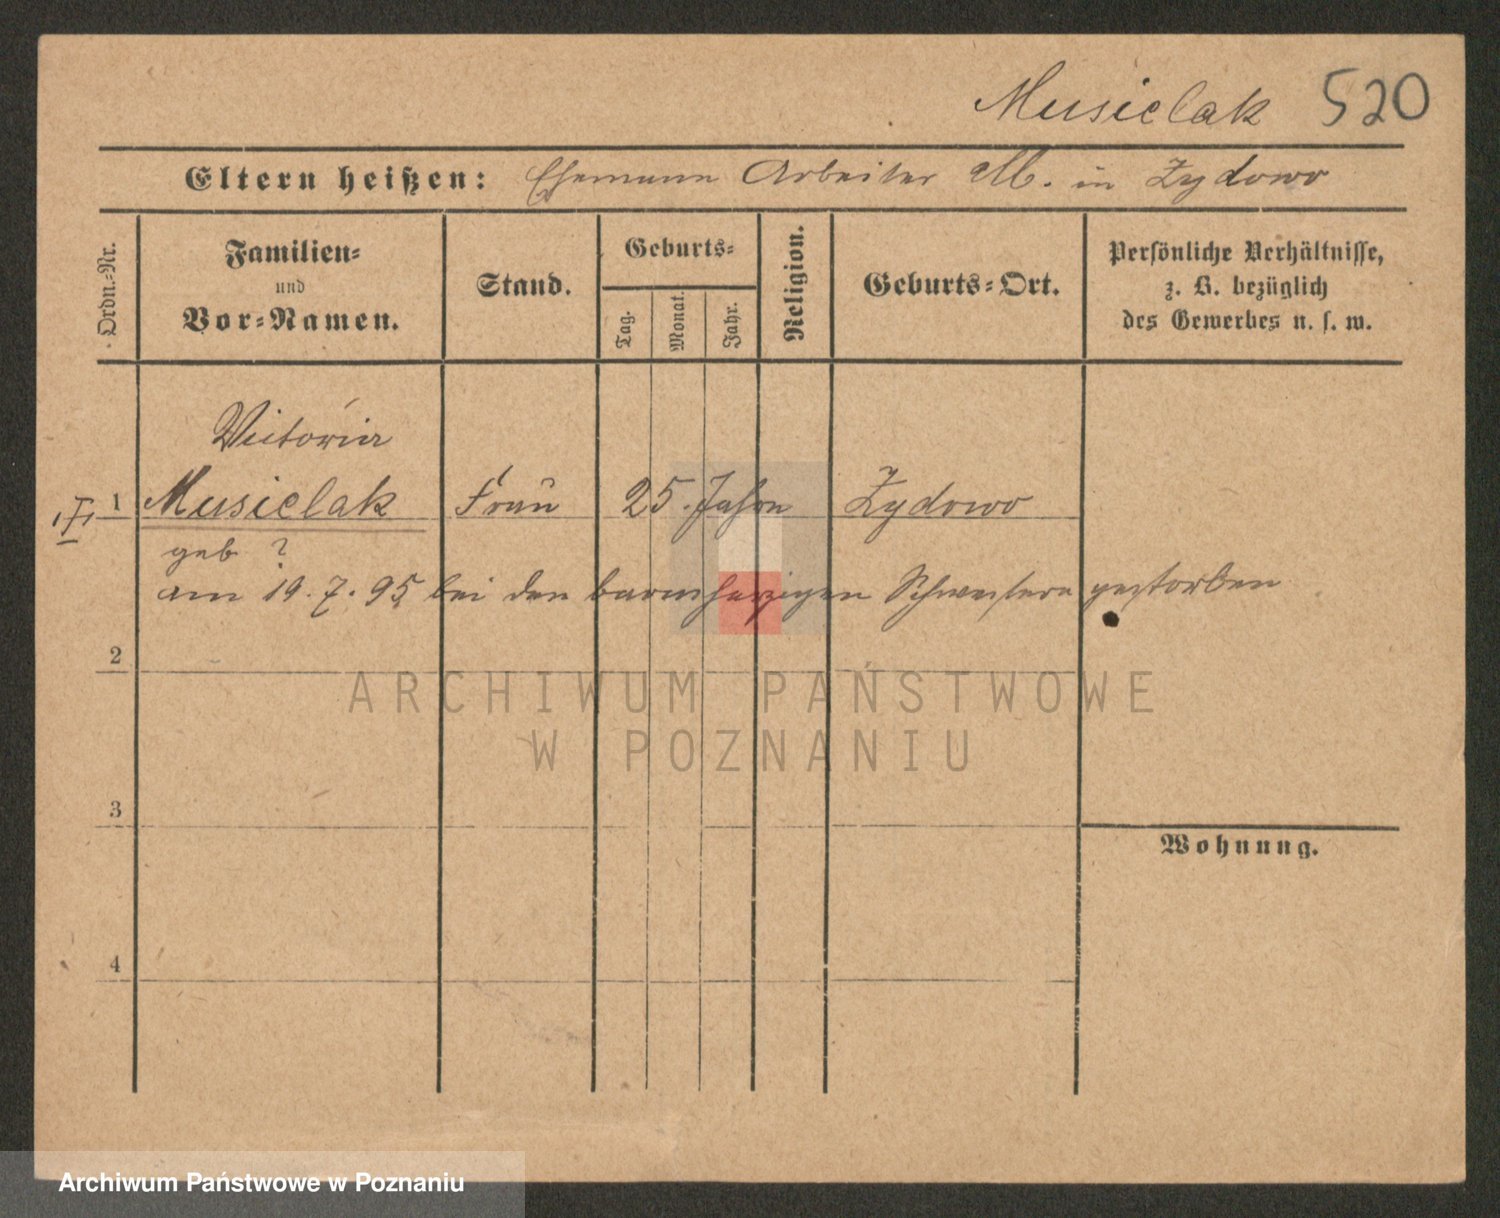 Musielak 520
Eltern heißen: Ehemann Arbeiter M. in Zydowo
Ordn.-Nr.
Familien-
und
Vor-Namen.
Stand.
Geburts-
Tag.
Monat.
Jahr.
Religion.
Geburts-Ort.
Persönliche Verhältnisse,
z. B. bezüglich
des Gewerbes u. s. w.
Victoria
1 Musielak Frau 25 Jahre Zydowo
geb ?
am 19. 7. 95 bei den barmherzigen Schwestern gestorben
2
ARCHIWUM PAŃSTWOWE
W POZNANIU
3
Wohnung.
4
Archiwum Państwowe w Poznaniu